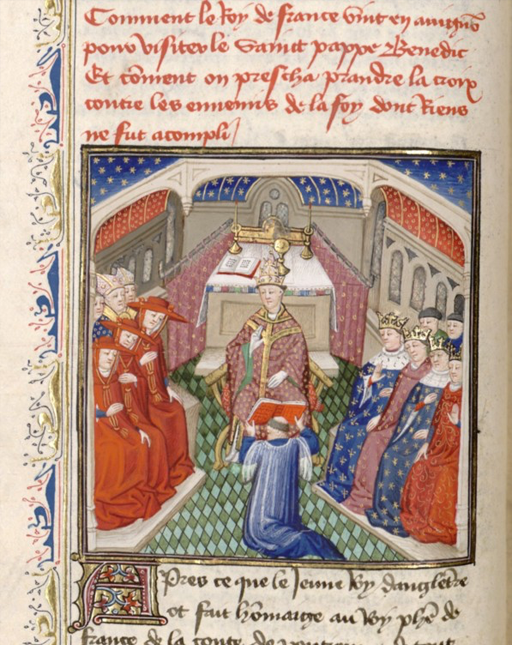 Comment le Roy de france vint en avignõ
pour visiter le Sainct pappe Benedic
Et cõment on prescha prandre la croix
contre les ennemis de la foy dont Riens
ne fut acompli
Apres ce que le Jeune Roy dangletre
ot fait hõmaige au Roy phẽ de
france de la conte de